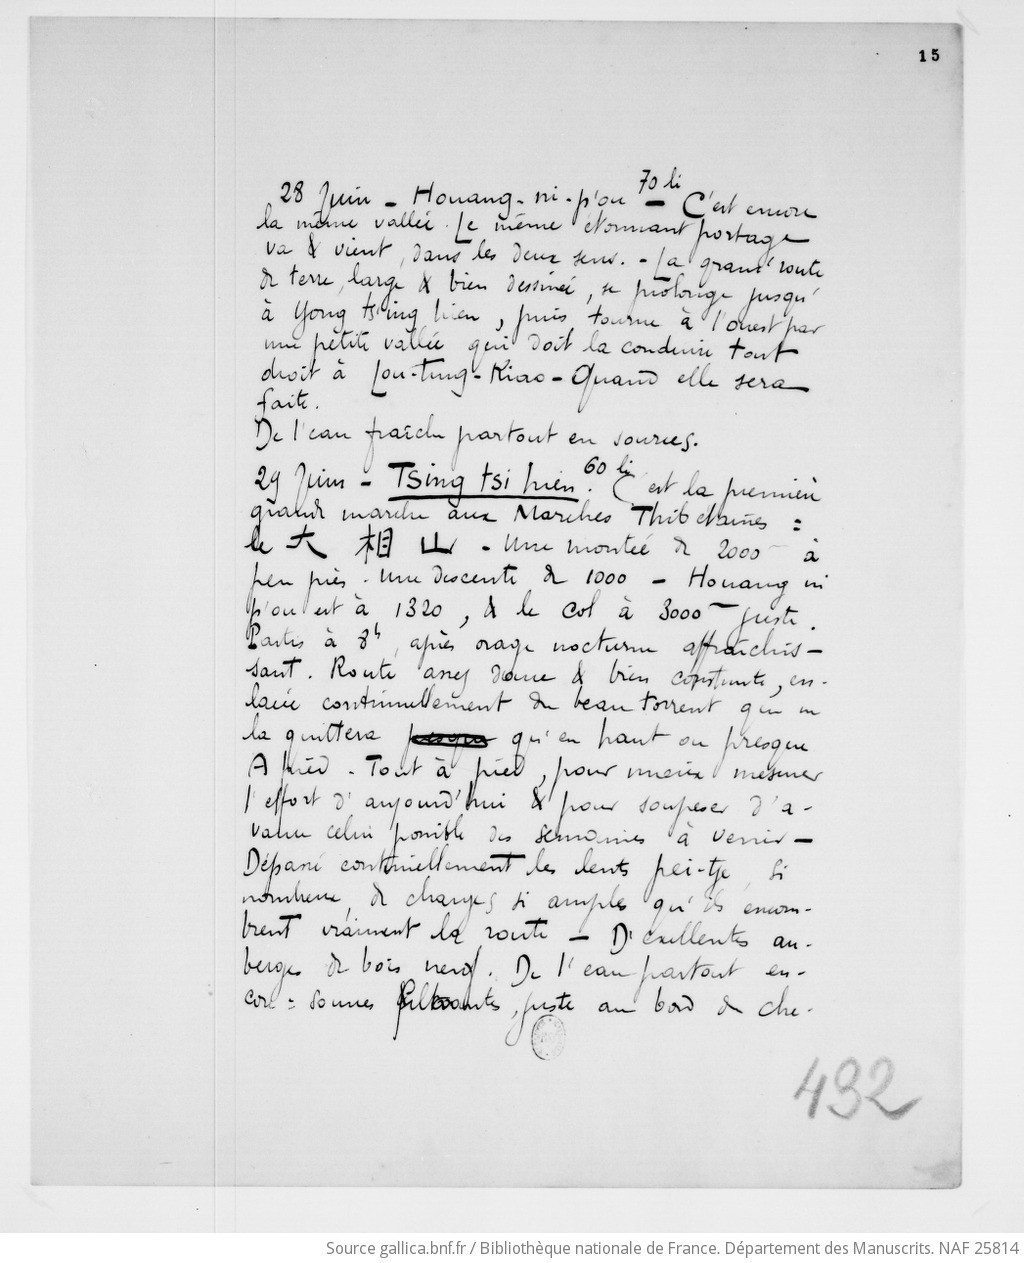 15
28 Juin – Houang-ni-p'ou 70 li – C'est encore
la même vallée. Le même étonnant portage
va & vient, dans les deux sens. – La grand'route
de terre, large & bien dessinée, se prolonge jusqu'
à Yong ts'ing hien, puis tourne à l'ouest par
une petite vallée qui doit la conduire tout
droit à Lou-ting-Kiao – Quand elle sera
faite.
De l'eau fraîche partout en sources.
29 Juin – Tsing tsi hien. 60 li C'est la première
grande marche aux Marches Thibétaines :
le 大 相 山 – Une montée de 2000 à
peu près. Une descente de 1000 – Houang ni
p'ou est à 1320, & le col à 3000 juste.
Partis à 8h, après orage nocturne affraîchis-
sant. Route assez douce & bien construite, en-
lacée continuellement du beau torrent qui ne
la quittera qu'en haut ou presque
A pied. Tout à pied, pour mieux mesurer
l'effort d'aujourd'hui & pour soupeser d'a-
vance celui possible des semaines à venir –
Dépassé continuellement les lents pei-tse, si
nombreux, de charges si amples qu'ils encom-
brent vraiment la route – D'excellentes au-
berges de bois neuf. De l'eau partout en-
core : sources filtrantes, juste au bord du che-
432
Source gallica.bnf.fr / Bibliothèque nationale de France. Département des Manuscrits. NAF 25814